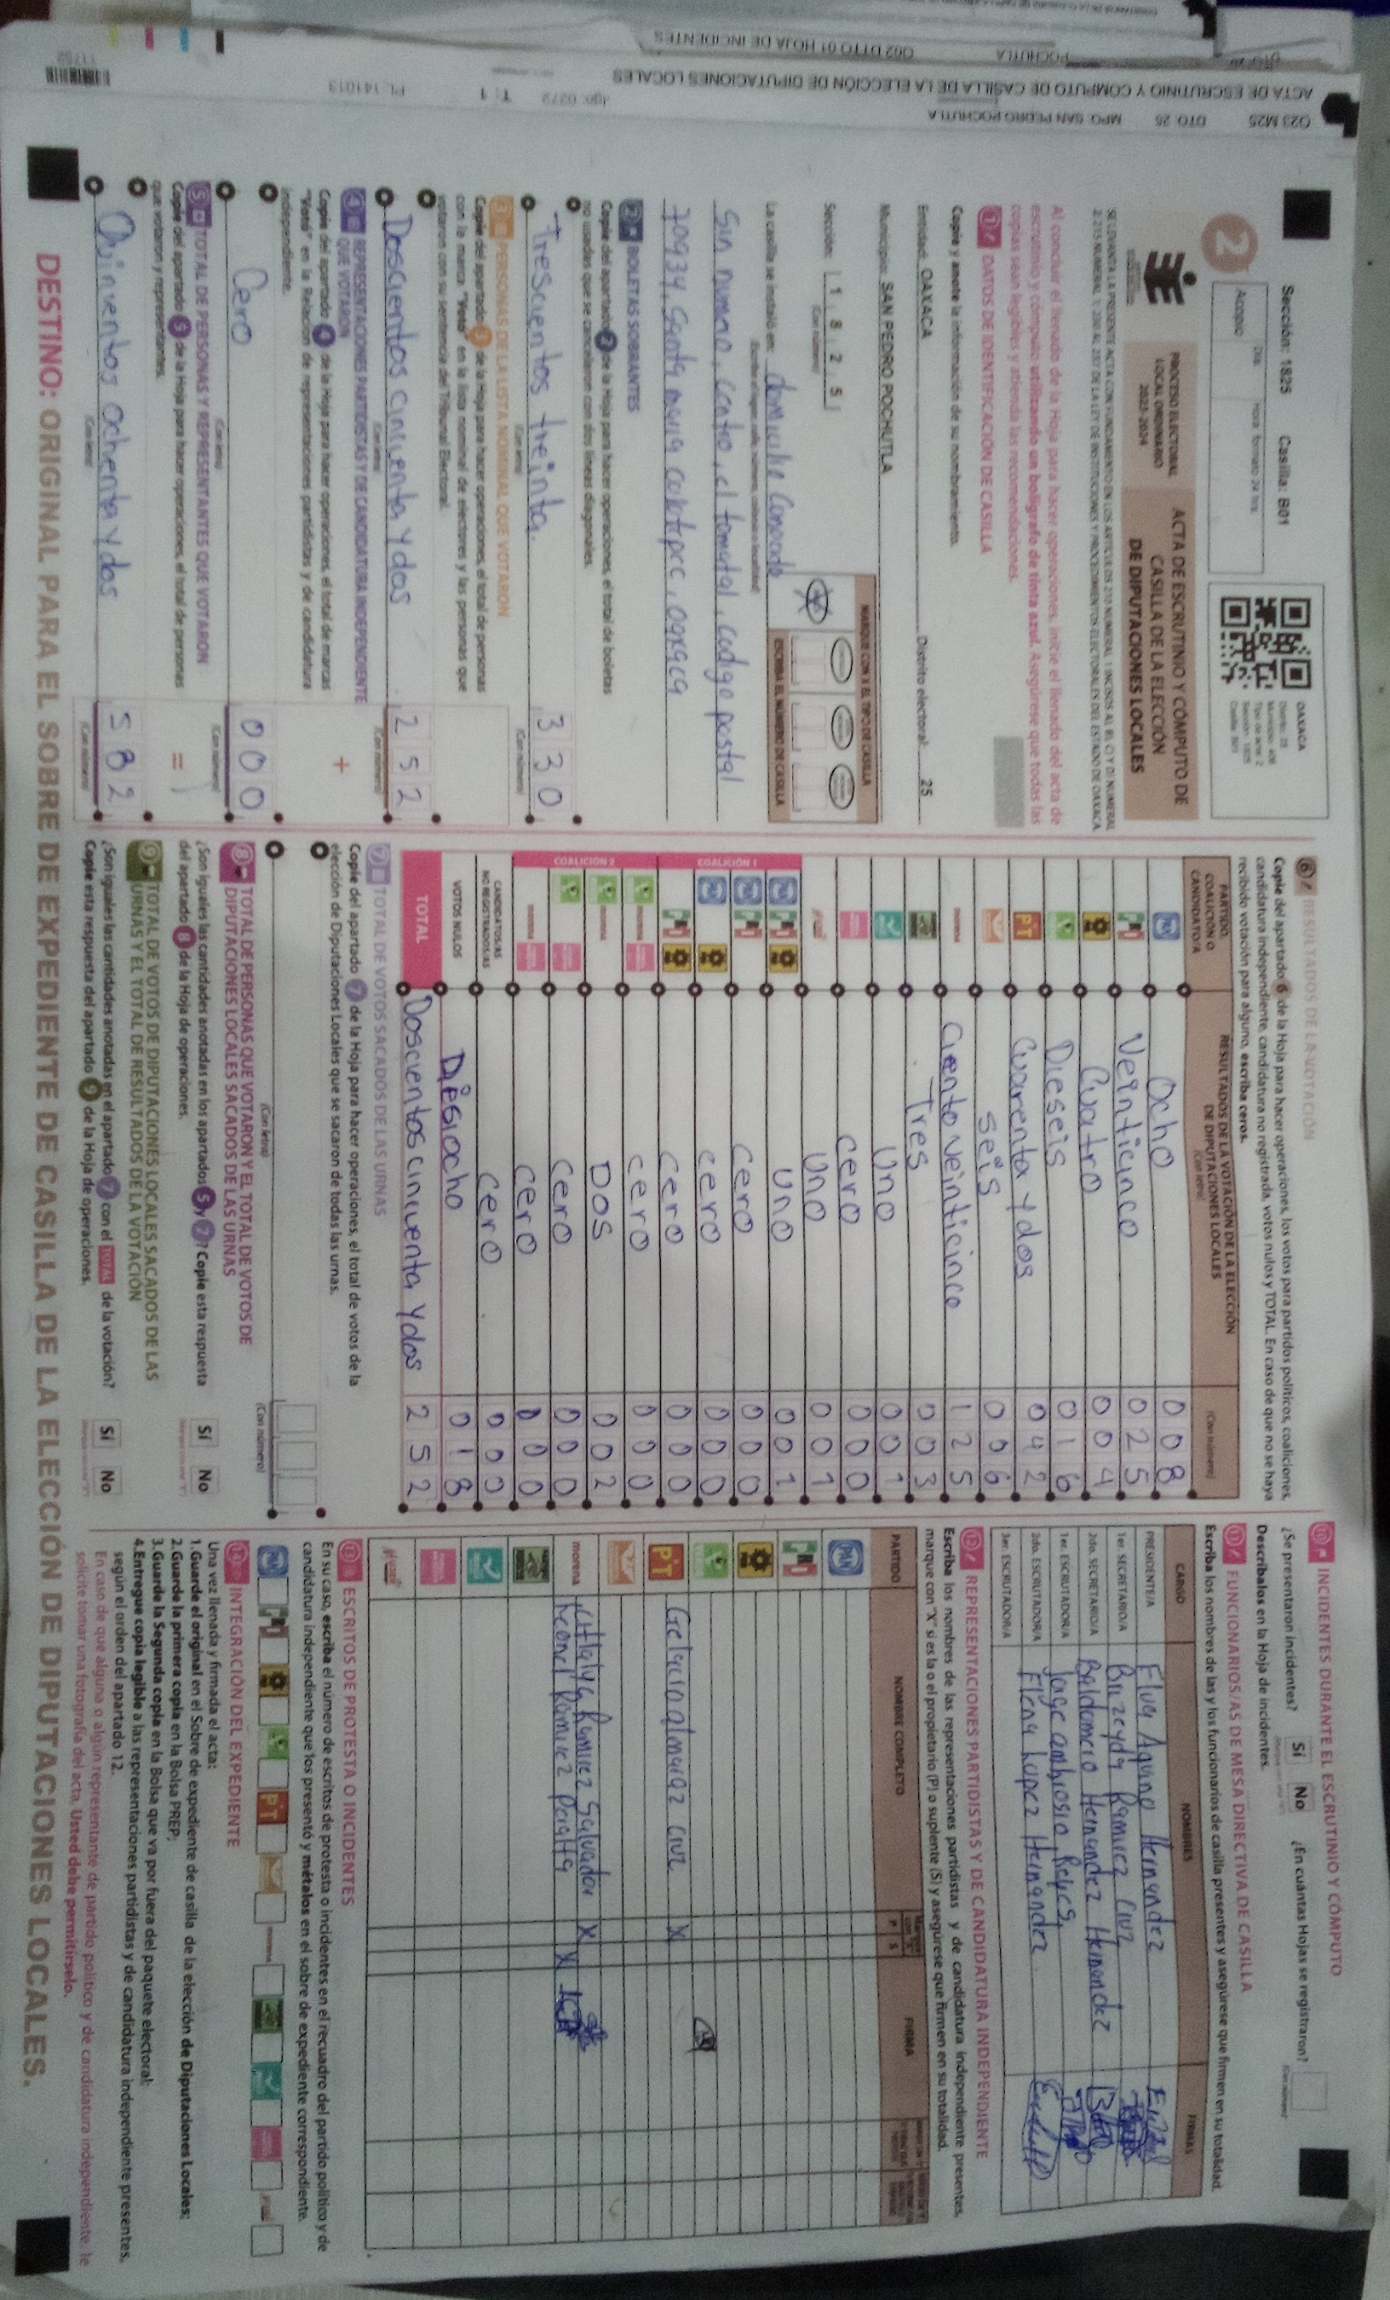 Sección: 1825 Casilla: B01
2
Acopio:
PROCESO ELECTORAL
LOCAL ORDINARIO
2023-2024
ACTA DE ESCRUTINIO Y CÓMPUTO DE
CASILLA DE LA ELECCIÓN
DE DIPUTACIONES LOCALES
OAXACA
Al concluir el llenado de la Hoja para hacer operaciones, inicie el llenado del acta de
escrutinio y cómputo utilizando un bolígrafo de tinta azul. Asegúrese que todas las
copias sean legibles y atienda las recomendaciones.
1 DATOS DE IDENTIFICACIÓN DE CASILLA
Copie y anote la información de su nombramiento.
Entidad: OAXACA Distrito electoral: 25
Municipio: SAN PEDRO POCHUTLA
Sección: 1 8 2 5
MARQUE CON X EL TIPO DE CASILLA
ESCRIBA EL NÚMERO DE CASILLA
La casilla se instaló en: domicilio Conocido
Sin numero, Centro, el tomatal, codigo postal
70934, Santa maria colotepec, oaxaca
2 BOLETAS SOBRANTES
Copie del apartado 2 de la Hoja para hacer operaciones, el total de boletas
no usadas que se cancelaron con dos líneas diagonales.
Trescientos treinta. 330
3 PERSONAS DE LA LISTA NOMINAL QUE VOTARON
Copie del apartado 3 de la Hoja para hacer operaciones, el total de personas
con la marca "Votó" en la lista nominal de electores y las personas que
votaron con su sentencia del Tribunal Electoral.
Doscientos cincuenta y dos 252
4 REPRESENTACIONES PARTIDISTAS Y DE CANDIDATURA INDEPENDIENTE
QUE VOTARON
Copie del apartado 4 de la Hoja para hacer operaciones, el total de marcas
"Votó" en la Relación de representaciones partidistas y de candidatura
independiente.
Cero 000
5 TOTAL DE PERSONAS Y REPRESENTANTES QUE VOTARON
Copie del apartado 5 de la Hoja para hacer operaciones, el total de personas
que votaron y representantes.
Quinientos ochenta y dos 582
6 RESULTADOS DE LA VOTACIÓN
Copie del apartado 6 de la Hoja para hacer operaciones, los votos para partidos políticos, coaliciones,
candidatura independiente, candidatura no registrada, votos nulos y TOTAL. En caso de que no se haya
recibido votación para alguno, escriba ceros.
PARTIDO, COALICIÓN O CANDIDATO/A
RESULTADOS DE LA VOTACIÓN DE LA ELECCIÓN
DE DIPUTACIONES LOCALES
(Con letra) (Con número)
PAN Ocho 008
PRI Veinticinco 025
Cuatro 004
Dieseis 016
PT Cuarenta y dos 042
Seis 006
morena Ciento Veinticinco 125
Tres 003
Uno 001
Cero 000
Uno 001
COALICIÓN 1
Uno 001
Cero 000
cero 000
cero 000
COALICIÓN 2
cero 000
Dos 002
Cero 000
cero 000
CANDIDATOS/AS NO REGISTRADOS/AS cero 000
VOTOS NULOS Diesiocho 018
TOTAL Doscientos cincuenta y dos 252
7 TOTAL DE VOTOS SACADOS DE LAS URNAS
Copie del apartado 7 de la Hoja para hacer operaciones, el total de votos de la
elección de Diputaciones Locales que se sacaron de todas las urnas.
(Con letra) (Con número)
8 TOTAL DE PERSONAS QUE VOTARON Y EL TOTAL DE VOTOS DE
DIPUTACIONES LOCALES SACADOS DE LAS URNAS
¿Son iguales las cantidades anotadas en los apartados 5 y 7? Copie esta respuesta
del apartado 8 de la Hoja de operaciones. Sí No
9 TOTAL DE VOTOS DE DIPUTACIONES LOCALES SACADOS DE LAS
URNAS Y EL TOTAL DE RESULTADOS DE LA VOTACIÓN
¿Son iguales las cantidades anotadas en el apartado 7 con el TOTAL de la votación?
Copie esta respuesta del apartado 9 de la Hoja de operaciones. Sí No
10 INCIDENTES DURANTE EL ESCRUTINIO Y CÓMPUTO
¿Se presentaron incidentes? Sí No ¿En cuántas Hojas se registraron?
Descríbalos en la Hoja de incidentes.
11 FUNCIONARIOS/AS DE MESA DIRECTIVA DE CASILLA
Escriba los nombres de las y los funcionarios de casilla presentes y asegúrese que firmen en su totalidad.
CARGO NOMBRES FIRMAS
PRESIDENTE/A Elva Aquino Hernandez
1er. SECRETARIO/A Brizeyda Ramirez Cruz
2do. SECRETARIO/A Baldomero Hernandez Hernandez
1er. ESCRUTADOR/A Jorge ambrosio Reyes
2do. ESCRUTADOR/A Elena Lopez Hernandez
3er. ESCRUTADOR/A
12 REPRESENTACIONES PARTIDISTAS Y DE CANDIDATURA INDEPENDIENTE
Escriba los nombres de las representaciones partidistas y de candidatura independiente presentes,
marque con "X" si es la o el propietario (P) o suplente (S) y asegúrese que firmen en su totalidad.
PARTIDO NOMBRE COMPLETO P S FIRMA
PAN
PRI
PT Gelacio almaraz cruz X
morena Citlalya Ramirez Salvador X
Leonel Ramirez Peralta X
13 ESCRITOS DE PROTESTA O INCIDENTES
En su caso, escriba el número de escritos de protesta o incidentes en el recuadro del partido político y de
candidatura independiente que los presentó y métalos en el sobre de expediente correspondiente.
14 INTEGRACIÓN DEL EXPEDIENTE
Una vez llenada y firmada el acta:
1.Guarde el original en el Sobre de expediente de casilla de la elección de Diputaciones Locales;
2.Guarde la primera copia en la Bolsa PREP;
3.Guarde la Segunda copia en la Bolsa que va por fuera del paquete electoral;
4.Entregue copia legible a las representaciones partidistas y de candidatura independiente presentes,
según el orden del apartado 12.
En caso de que alguna o algún representante de partido político y de candidatura independiente, le
solicite tomar una fotografía del acta, Usted debe permitírselo.
DESTINO: ORIGINAL PARA EL SOBRE DE EXPEDIENTE DE CASILLA DE LA ELECCIÓN DE DIPUTACIONES LOCALES.
Q23 M25 DTO: 25 MPO: SAN PEDRO POCHUTLA
ACTA DE ESCRUTINIO Y CÓMPUTO DE CASILLA DE LA ELECCIÓN DE DIPUTACIONES LOCALES
POCHUTLA Q02 DTTO 01 HOJA DE INCIDENTES